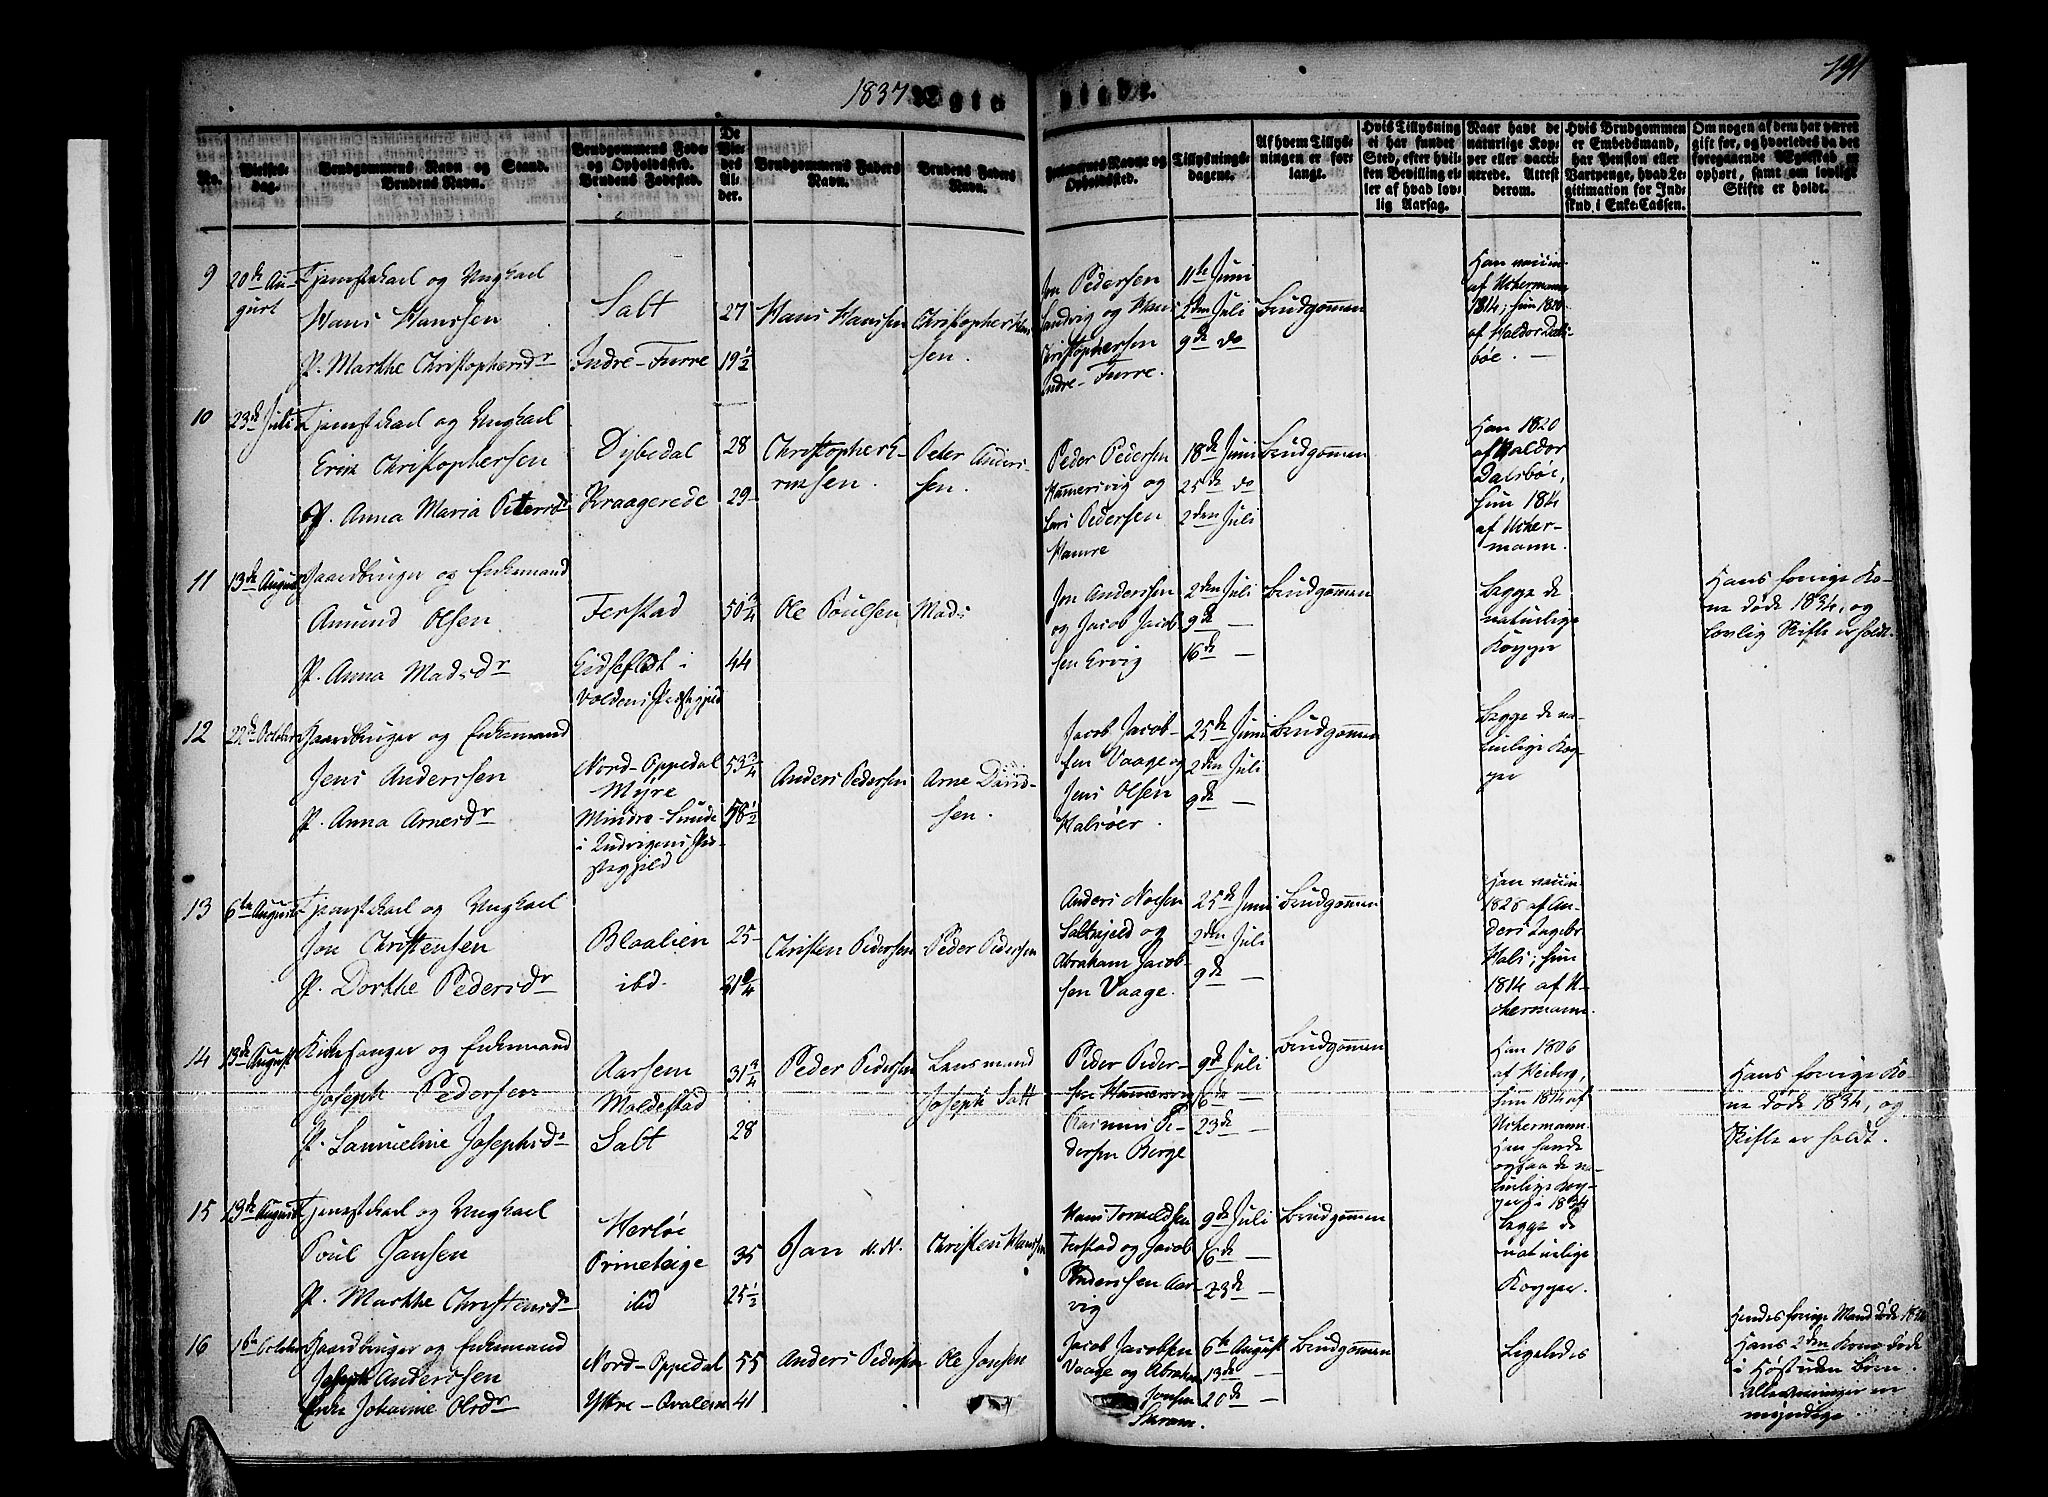 1837 Ægte vigde. 191
No.
Vielses-
dag.
Brudgommens Navn og Stand.
Brudens Navn.
Brudgommens Føde-
og Opholdssted.
Brudens Fødested.
De
Vie-
des
Al-
der.
Brudgommens Faders
Navn.
Brudens Faders
Navn.
Forlovernes Navne og
Opholdssted.
Tillysnings-
dagene.
Af hvem Tillys-
ningen er for-
langt.
Hvis Tillysning
ei har fundet
Sted, efter hvil-
ken Bevilling el-
ler af hvad lov-
lig Aarsag.
Naar havt de
naturlige Kop-
per eller vacci-
nerede. Attest
derom.
Hvis Brudgommen
er Embedsmand,
har Pension eller
Vartpenge, hvad Le-
gitimation for Ind-
skud i Enke-Cassen.
Om nogen af dem har været
gift før, og hvorledes da det
foregaaende Ægteskab er
ophørt, samt om lovligt
Skifte er holdt.
9
20de Au-
gust
Tjenestekarl og Ungkarl
Hans Hanssen
P. Marthe Christophersdr
Salt
Indre-Furre
27
19 1/2
Hans Hanssen
Christopher Han-
sen.
Jon Pedersen
Sandvig og Hans
Christophersen
Indre-Furre.
11te Juni
2den Juli
9de do
Brudgommen
Han vaccin.
af Uchermann
1814; hun 1820
af Haldor Dals-
bøe. —
10
23de Juli
Tjenestekarl og Ungkarl
Erik Christophersen
P. Anna Maria Petersdr
Dybedal
Kraagerede
28
29
Christopher E-
riksen.
Peter Anders-
sen.
Peder Pedersen
Hammersvig og
Lars Pedersen
Hamre
18de Juni
25de do
2den Juli
Brudgommen
Han 1820
af Haldor
Dalsbøe,
hun 1814
af Ucher-
mann.
11
13de August
Gaardbruger og Enkemand
Amund Olsen
P. Anna Madsdr
Ferstad
Eidseflot i
Voldens Præstegjeld
50 3/4
44
Ole Poulsen
Mads
Jon Anderssen
og Jacob Jacob-
sen Ervig
2den Juli
9de —
16de —
Brudgommen
Begge de
naturlige
Kopper
Hans forrige Ko-
ne døde 1834, og
lovlig Skifte er holdt.
12
22de October
Gaardbruger og Enkemand
Jens Anderssen
P. Anna Arnesdr
Nord-Oppedal
Myre
Mindre-Sunde
i Indvigens Præ-
stegjeld
53 3/4
58 1/2
Anders Pedersen
Arne David-
sen.
Jacob Jacob-
sen Vaage og
Jens Olsen
Halsøer.
25de Juni
2den Juli
9de —
Brudgommen
Begge de na-
turlige Kop-
per
13
6te August
Tjenestekarl og Ungkarl
Jon Christensen
P. Dorthe Pedersdr
Blaalien
ibd.
25
Christen Pedersen
Peder Pedersen
Anders Noesen
Saltskjeld og
Abraham Jacob-
sen Vaage.
25de Juni
2den Juli
9de —
Brudgommen
Han vaccin.
1826 af An-
ders Ingebr.
Hals; hun
1814 af U-
chermann.
14
13de August
Kirkesanger og Enkemand
Joseph Pedersen
P. Samueline Josephsdr
Aarsem
Moldestad
Salt
31 3/4
28
Peder Pedersen
Lensmand
Joseph Salt
Peder Peder-
sen Hammersvig
Rasmus Pe-
dersen Berge
9de Juli
16de —
23de —
Brudgommen
Han 1806
af Heiberg,
hun 1814 af
Uchermann.
Han havde
ogsaa de na-
turlige Kop-
per i 1834
Hans forrige Ko-
ne døde 1834, og
Skifte er holdt.
15
13de August
Tjenestekarl og Ungkarl
Poul Jansen
P. Marthe Christensdr
Herløe
Prineteige
ibd
35
25 1/2
Jan N.N.
Christen Hanssen
Hans Torvaldsen
Ferstad og Jacob
Anderssen Aar-
vig
9de Juli
16de —
23de —
Brudgommen
Begge de
naturlige
Kopper.
16
1ste October
Gaardbruger og Enkemand
Joseph Anderssen
Enke Johanne Olsdr
Nord-Oppedal
Yttre-Qvalem
55
41
Anders Pedersen
Ole Jonsen
Jacob Jacobsen
Vaage og Abraham
Jonsen
6te August
13de —
20de —
Brudgommen
Ligeledes
Hendes forrige Mand døde 1834
Hans 2den Kone døde
i Høst uden Børn.
Alle Arvinger ere
myndige.